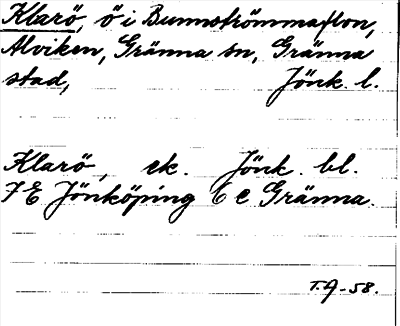 Klarö, ö i Bunnströmmaflon,
Alviken, Gränna sn, Gränna
stad, Jönk. l.
Klarö, ek. Jönk. bl.
7 E Jönköping 6 e Gränna.
T.A-58.